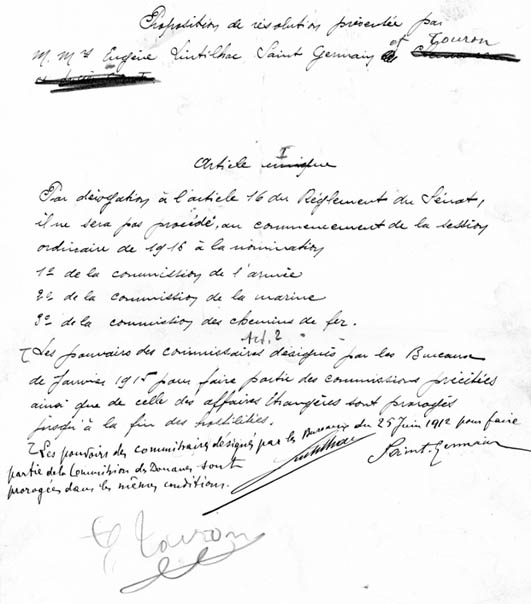 Proposition de résolution présentée par
M. Mrs Eugène Lintilhac Saint Germain et Touron
Article I unique
Par dérogation à l'article 16 du Règlement du Sénat,
il ne sera pas procédé, au commencement de la session
ordinaire de 1916 à la nomination
1º de la commission de l'armée
2º de la commission de la marine
3º de la commission des chemins de fer.
Art. 2
Les pouvoirs des commissaires désignés par les Bureaux
de Janvier 1915 pour faire partie des commissions précitées
ainsi que de celle des affaires étrangères sont prorogés
jusqu'à la fin des hostilités.
Les pouvoirs des commissaires désignés par les Bureaux du 25 Juin 1912 pour faire
partie de la Commission des Douanes sont
prorogés dans les mêmes conditions.
Lintilhac
Saint-Germain
E Touron